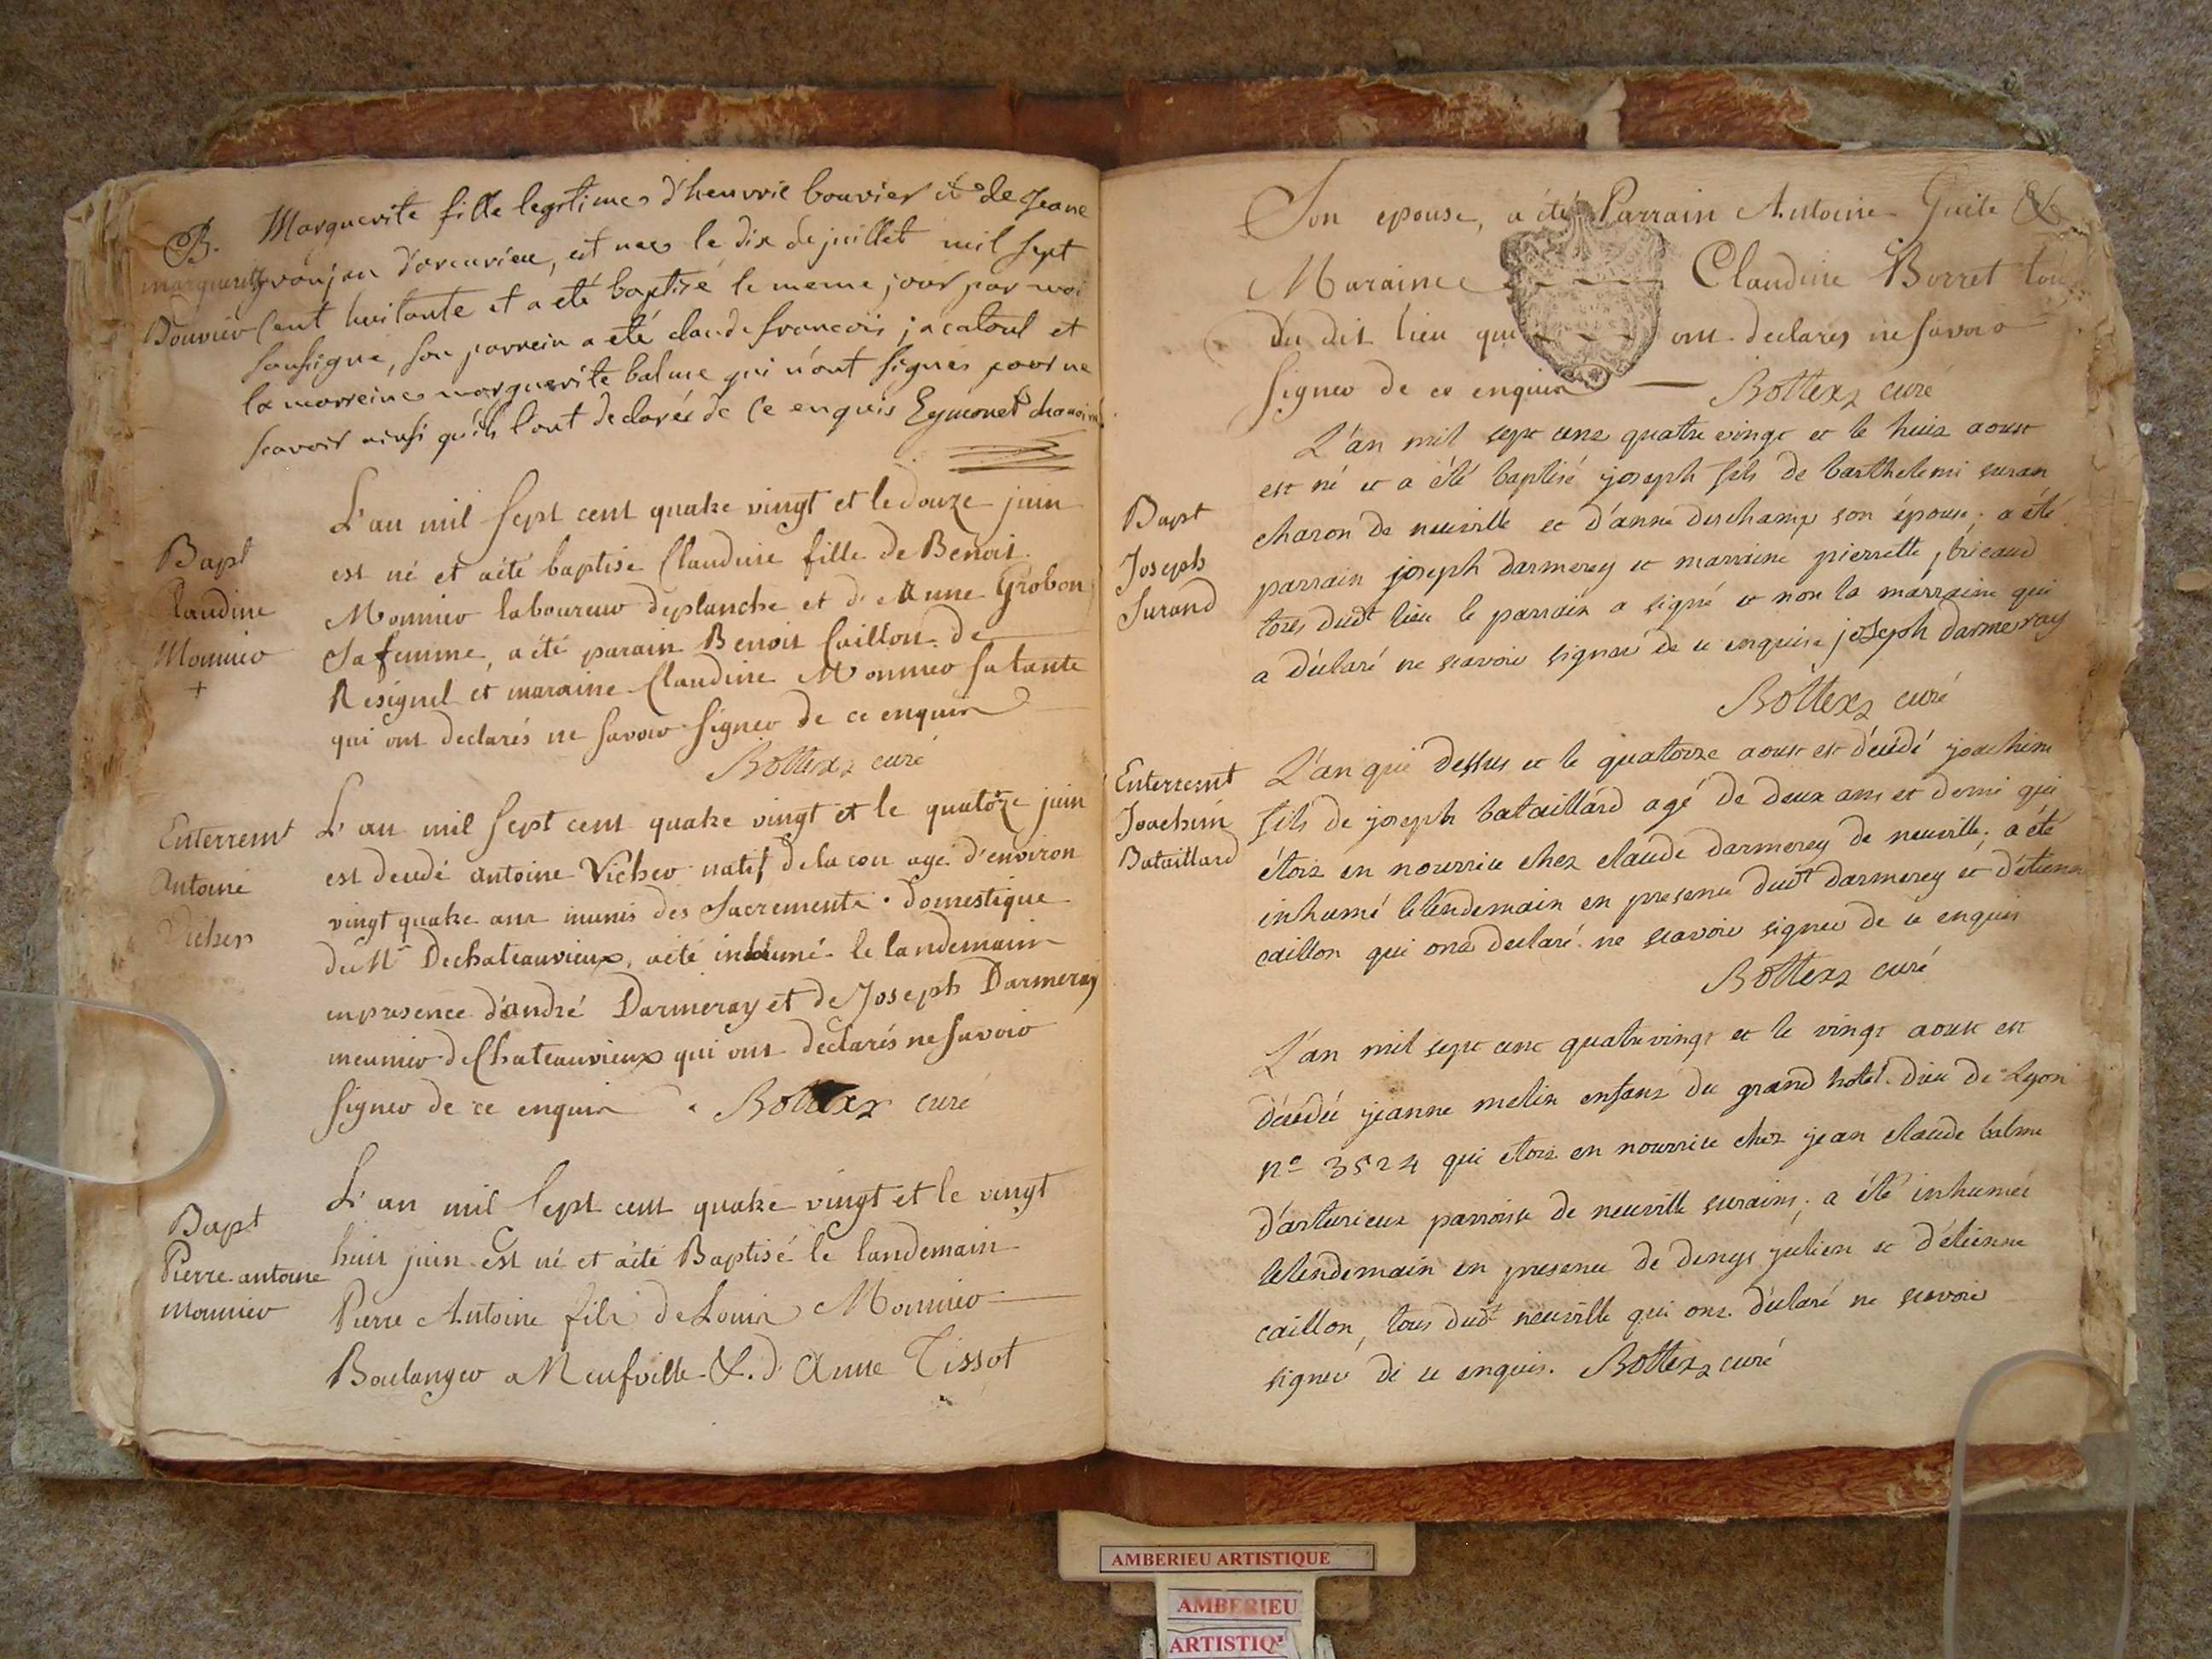 B.
marguerite
Bouvier
Marguerite fille legitime d'henvrie bouvier et de Jeane
vroujon d'oreurieu, est nee le dix de juillet mil sept
Cent huitante et a eté baptisé le meme jour par moi
sousigne, son parrein a eté claude francois jacatoul et
la marreine marguerite balme qui n'ont signés pour ne
scavoir ainsi qu'ils l'ont declarés de Ce enquis Eymonet chanoine
Bapt
Claudine
Monnier
+
L'an mil sept cent quatre vingt et le douze juin
est né et a été baptise Claudine fille de Benoit
Monnier laboureur deplanche et d'Anne Grobon
Sa femme, a été parain Benoit Caillon de
Resignel et maraine Claudine Monnier sa tante
qui ont declarés ne savoir signer de ce enquis
Bottex curé
Enterremt
Antoine
Vicher
L'an mil sept cent quatre vingt et le quatorze juin
est decedé antoine Vicher natif de la cou agé d'environ
vingt quatre ans munis des Sacrements. domestique
du Mr Dechateauvieux, a été inhumé le landemain
en presence d'andré Darmeray et de Joseph Darmeray
meunier de Chateauvieux qui ont declarés ne savoir
signer de ce enquis Bottex curé
Bapt
Pierre antoine
Monnier
L'an mil sept cent quatre vingt et le vingt
huit juin est né et a été Baptisé le landemain
Pierre Antoine fils de Louis Monnier
Boulanger a Neufville & d'Anne Tissot
Son epouse, a été Parrain Antoine Guile &
Maraine Claudine Borret tous
du dit lieu qui ont declarés ne savoir
signer de ce enquis Bottex curé
Bapt
Joseph
Surand
L'an mil sept cens quatre vingt et le huit aoust
est né et a été baptisé joseph fils de barthelemi suran
charon de neuville et d'anne deschamp son épouse; a été
parrain joseph darmerey et marraine pierrette bricaud
tous dudt lieu le parrain a signé et non la marraine qui
a déclaré ne scavoir signer de ce enquise joseph darmeray
Bottex curé
Enterremt
Joachim
Bataillard
L'an que dessus et le quatorze aoust est décédé joachim
fils de joseph bataillard agé de deux ans et demi qui
étoit en nourrice chez claude darmerey de neuville; a été
inhumé le lendemain en presence dudt darmerey et d'étienne
caillon qui ont declaré ne scavoir signer de ce enquis
Bottex curé
L'an mil sept cent quatre vingt et le vingt aoust est
décédée jeanne melin enfant du grand hotel-dieu de Lyon
no 3524 qui etoit en nourrice chez jean claude balme
d'arturieux parroisse de neuville surains; a été inhumée
le lendemain en presence de denys julien et d'étienne
caillon, tous dudt neuville qui ont déclaré ne scavoir
signer de ce enquis. Bottex curé
AMBERIEU ARTISTIQUE
AMBERIEU
ARTISTIQ